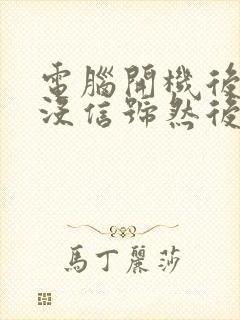 電腦開機後
沒信號然後
馬丁麗莎